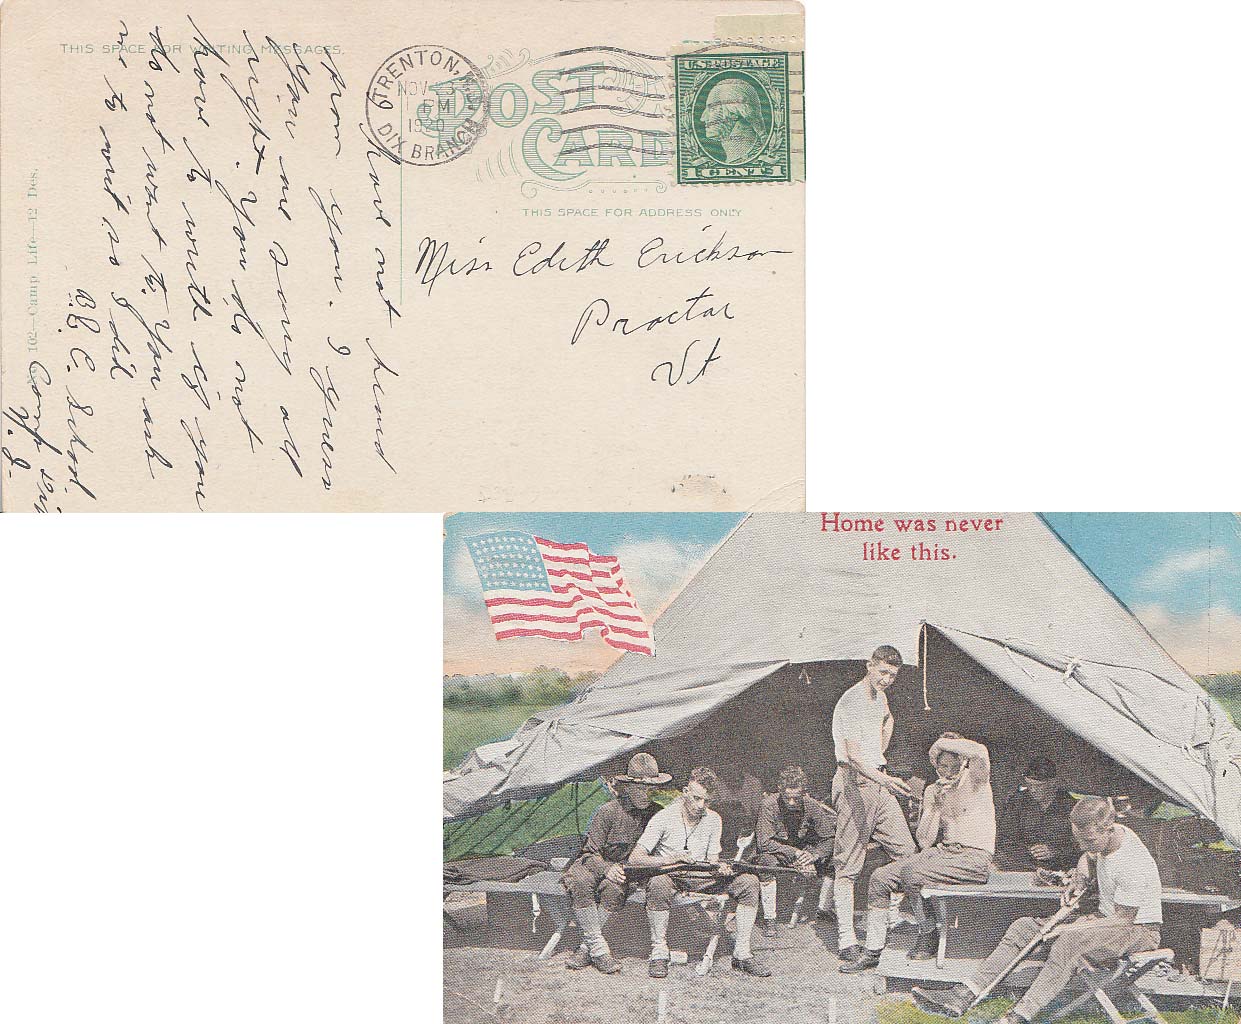 THIS SPACE FOR WRITING MESSAGES.
POST CARD
THIS SPACE FOR ADDRESS ONLY
TRENTON, N.J.
NOV
PM
1920
DIX BRANCH
U.S. POSTAGE
1 CENT 1
Miss Edith Erickson
Proctor
Vt
Have not heard
from you. I guess
you are sorry all
right. You do not
have to write if you
do not want to. You ask
me to write so I did
B.E.C. School.
Camp Dix
N.J.
No. 102—Camp Life—12 Des.
Home was never
like this.